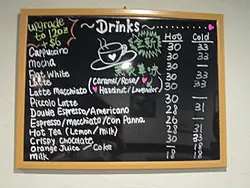 upgrade
to 12oz
+ $6
~ Drinks ~
Hot Cold
Cappuccino 30 33
Mocha 30 33
Flat White 30 33
Latte (Caramel/Rose/ 30 33
Latte Macchiato Hazelnut/Lavender) 30
Piccolo Latte 30
Double Espresso/Americano 28 31
Espresso/macchiato/Con Panna 26
Hot Tea (Lemon/milk) 28 31
Crispy Chocolate 33
Orange Juice / Coke 18
Milk 18 18